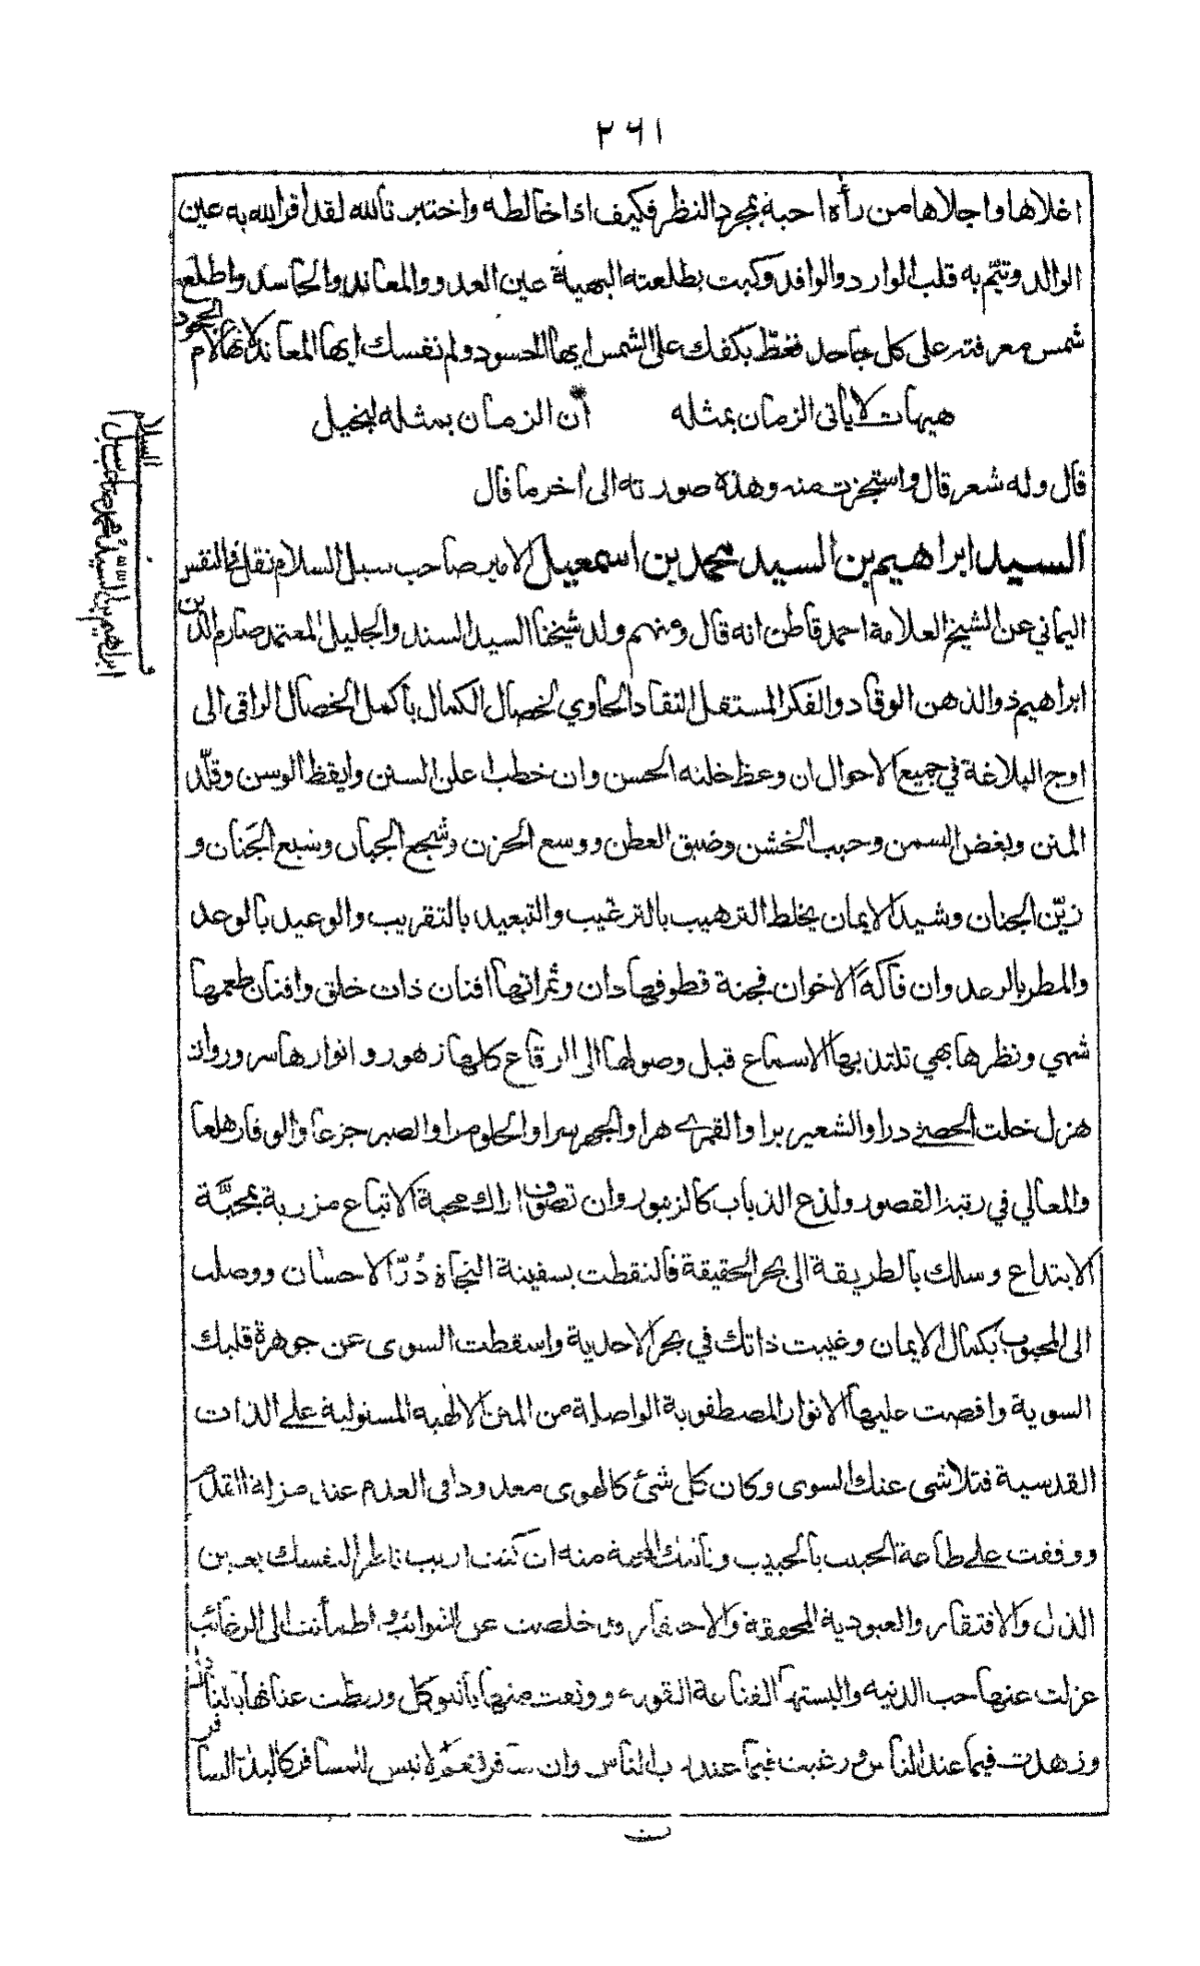 ٢٦١
اغلاها واجلاها من رأه احبه بمجرد النظر فكيف اذا خالطه واختبر تالله لقد اقر الله به عين
الوالد وتيّم به قلب الوارد والوافد وكبت بطلعته البهية عين العدو والمعاند والحاسد واطلع
شمس معرفته على كل جاحد فغطّ بكفك على الشمس ايها الحسود ولم نفسك ايها المعاند
هيهات لا يأتي الزمان بمثله أن الزمان بمثله لبخيل
قال وله شعر قال واستنجزت منه وهذه صورته الى أخر ما قال
السيد ابراهيم بن السيد محمد بن اسمعيل الامير صاحب سبل السلام نقل في النفس
اليماني عن الشيخ العلامة احمد قاطن انه قال ومنهم ولد شيخنا السيد السند والجليل المعتمد صارم الدين
ابراهيم ذو الذهن الوقاد والفكر المستقل النقاد الحاوي لخصال الكمال بأكمل الخصال الراقى الى
اوج البلاغة في جميع الاحوال ان وعظ خلته الحسن وان خطب اعلن السنن وايقظ الوسن وقلّد
المنن وبغض السمن وحبب الخشن وضيق العطن ووسع الحزن وشجع الجبان وشبع الجَنان و
زيّن الجنان وشيد الايمان يخلط الترهيب بالترغيب والتبعيد بالتقريب والوعيد بالوعد
والمطر بالرعد وان فاكه الاخوان فجنة قطوفها دان وثمراتها افنان ذات خلق وافنان طعمها
شهي ونظرها بهي تلتذ بها الاسماع قبل وصولها الى الرقاع كلها زهور وانوارها سرور وان
هزل خلت الحصى درا والشعير برا والقمرى هرا والجهر سرا والحلو مرا والصبر جزعا والوقار هلعا
والمعالي في رتبة القصور ولذع الذباب كالزنبور وان تصوف اراك محبة الاتباع مزرية بمحبَّة
الابتداع وسلك بالطريقة الى بحر الحقيقة فالتقطت بسفينة النجاة دُرّ الاحسان ووصلت
الى المحبوب بكمال الايمان وغيبت ذاتك في بحر الاحدية واسقطت السوى عن جوهرة قلبك
السوية وافضت عليها الانوار المصطفوية الواصلة من المنن الالهية المستولية على الذات
القدسية فتلاشى عنك السوى وكان كل شئ كالهوى معدودا فى العدم عند
ووقفت على طاعة الحبيب بالحبيب منه ان كنت اريب ناظرا لنفسك بعين
الذل والافتقار والعبودية المحققة والاحتقار وقد خلصت عن الشوائب واطمأنت الى الرغائب
عزلت عنها حب الدنيه والبستها القناعة بالتوكل وربطت عنانها
وزهدت فيما عند الناس ورغبت فيما عند رب الناس وان
السيد ابراهيم بن السيد محمد صاحب سبل السلام